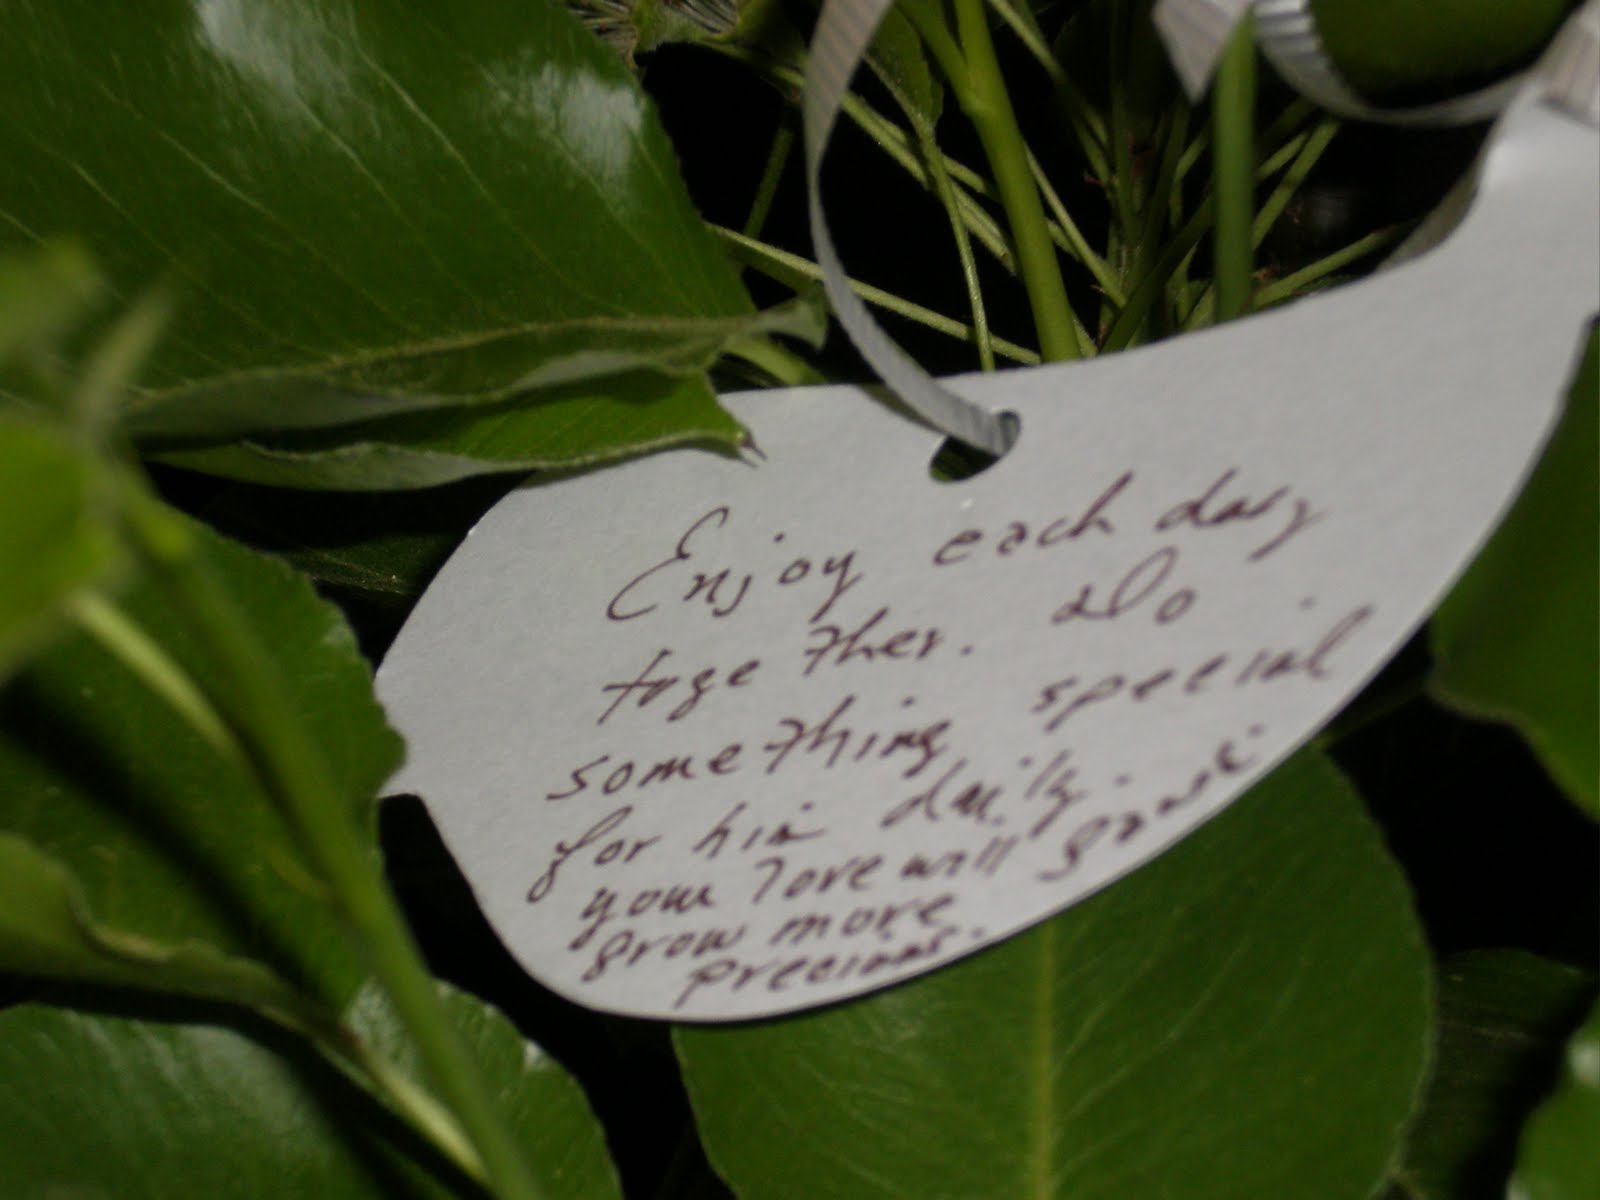 Enjoy each day
together. Do
something special
for him daily.
your love will grow
grow more
precious.